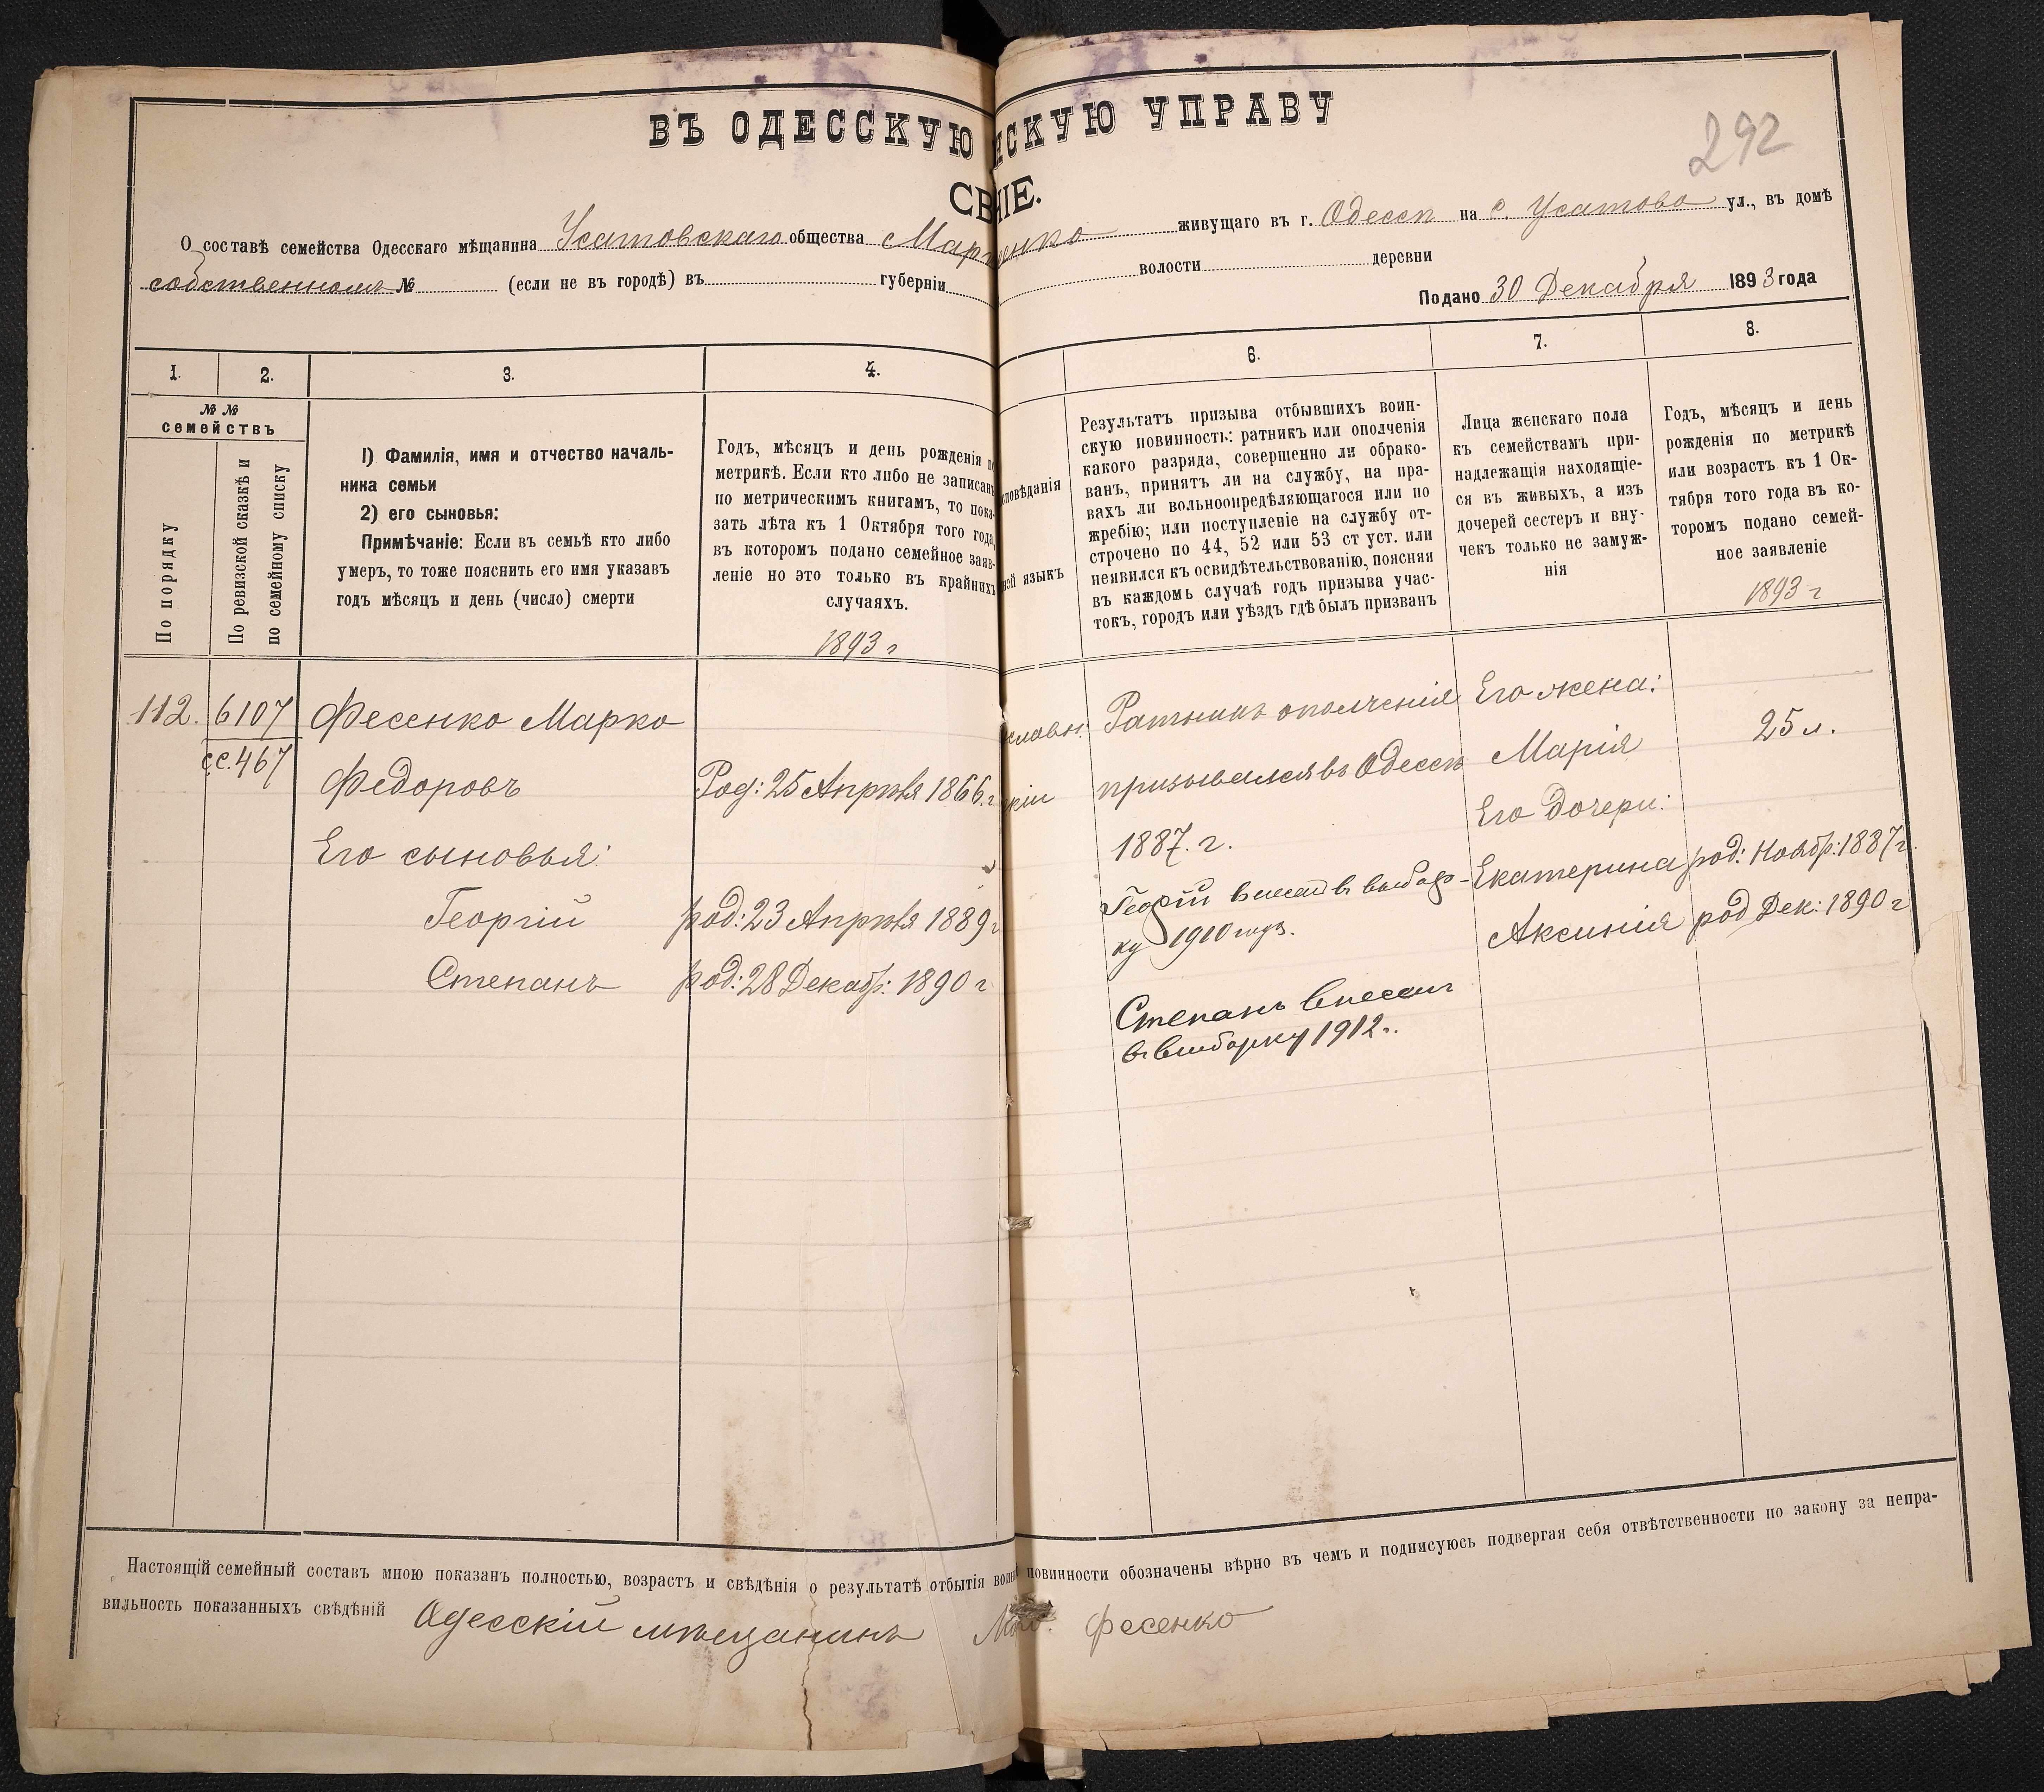 292
ВЪ ОДЕССКУЮ НСКУЮ УПРАВУ
СВ НІЕ.
О составѣ семейства Одесскаго мѣщанина Усатовскаго общества Мар енко живущаго въ г. Одессѣ на с. Усатово ул., въ домѣ
собственномъ № (если не въ городѣ) въ губерніи волости деревни
Подано 30 Декабря 1893 года
1. 2. 3. 4. 6. 7. 8.
№ №
семействъ
По порядку
По ревизской сказкѣ и
по семейному списку
1) Фамилія, имя и отчество началь-
ника семьи
2) его сыновья:
Примѣчаніе: Если въ семьѣ кто либо
умеръ, то тоже пояснить его имя указавъ
годъ мѣсяцъ и день (число) смерти
Годъ, мѣсяцъ и день рожденія по
метрикѣ. Если кто либо не записанъ
по метрическимъ книгамъ, то пока-
зать лѣта къ 1 Октября того года,
въ которомъ подано семейное заяв-
леніе но это только въ крайнихъ
случаяхъ.
1893 г
сповѣданія
ной языкъ
Результатъ призыва отбывшихъ воин-
скую повинность: ратникъ или ополченія
какого разряда, совершенно ли обрако-
ванъ, принятъ ли на службу, на пра-
вахъ ли вольноопредѣляющагося или по
жребію; или поступленіе на службу от-
строчено по 44, 52 или 53 ст уст. или
неявился къ освидѣтельствованію, поясняя
въ каждомь случаѣ годъ призыва учас-
токъ, городъ или уѣздъ гдѣ былъ призванъ
Лица женскаго пола
къ семействамъ при-
надлежащія находящіе-
ся въ живыхъ, а изъ
дочерей сестеръ и вну-
чекъ только не замуж-
нія
Годъ, мѣсяцъ и день
рожденія по метрикѣ
или возрастъ къ 1 Ок-
тября того года въ ко-
торомъ подано семей-
ное заявленіе
1893 г
112. 6107
с.с. 467
Фесенко Марко
Федоровъ
Род: 25 Апрѣля 1866. г.
Его сыновья:
Георгій род: 23 Апрѣля 1889 г
Степанъ род: 28 Декабр: 1890 г
славн.
кій
Ратникъ ополченія
призывался въ Одессѣ
1887. г.
Георгій внесенъ въ выбор-
ку 1910 года.
Степанъ внесенъ
въ выборку 1912 г.
Его жена:
Марія 25 л.
Его дочери:
Екатерина род: Ноябр: 1887 г.
Аксинія род Дек: 1890 г
Настоящій семейный составъ мною показанъ полностью, возрастъ и свѣдѣнія о результатѣ отбытія воин повинности обозначены вѣрно въ чемъ и подписуюсь подвергая себя отвѣтственности по закону за непра-
вильность показанныхъ свѣдѣній Одесскій мѣщанинъ Фесенко